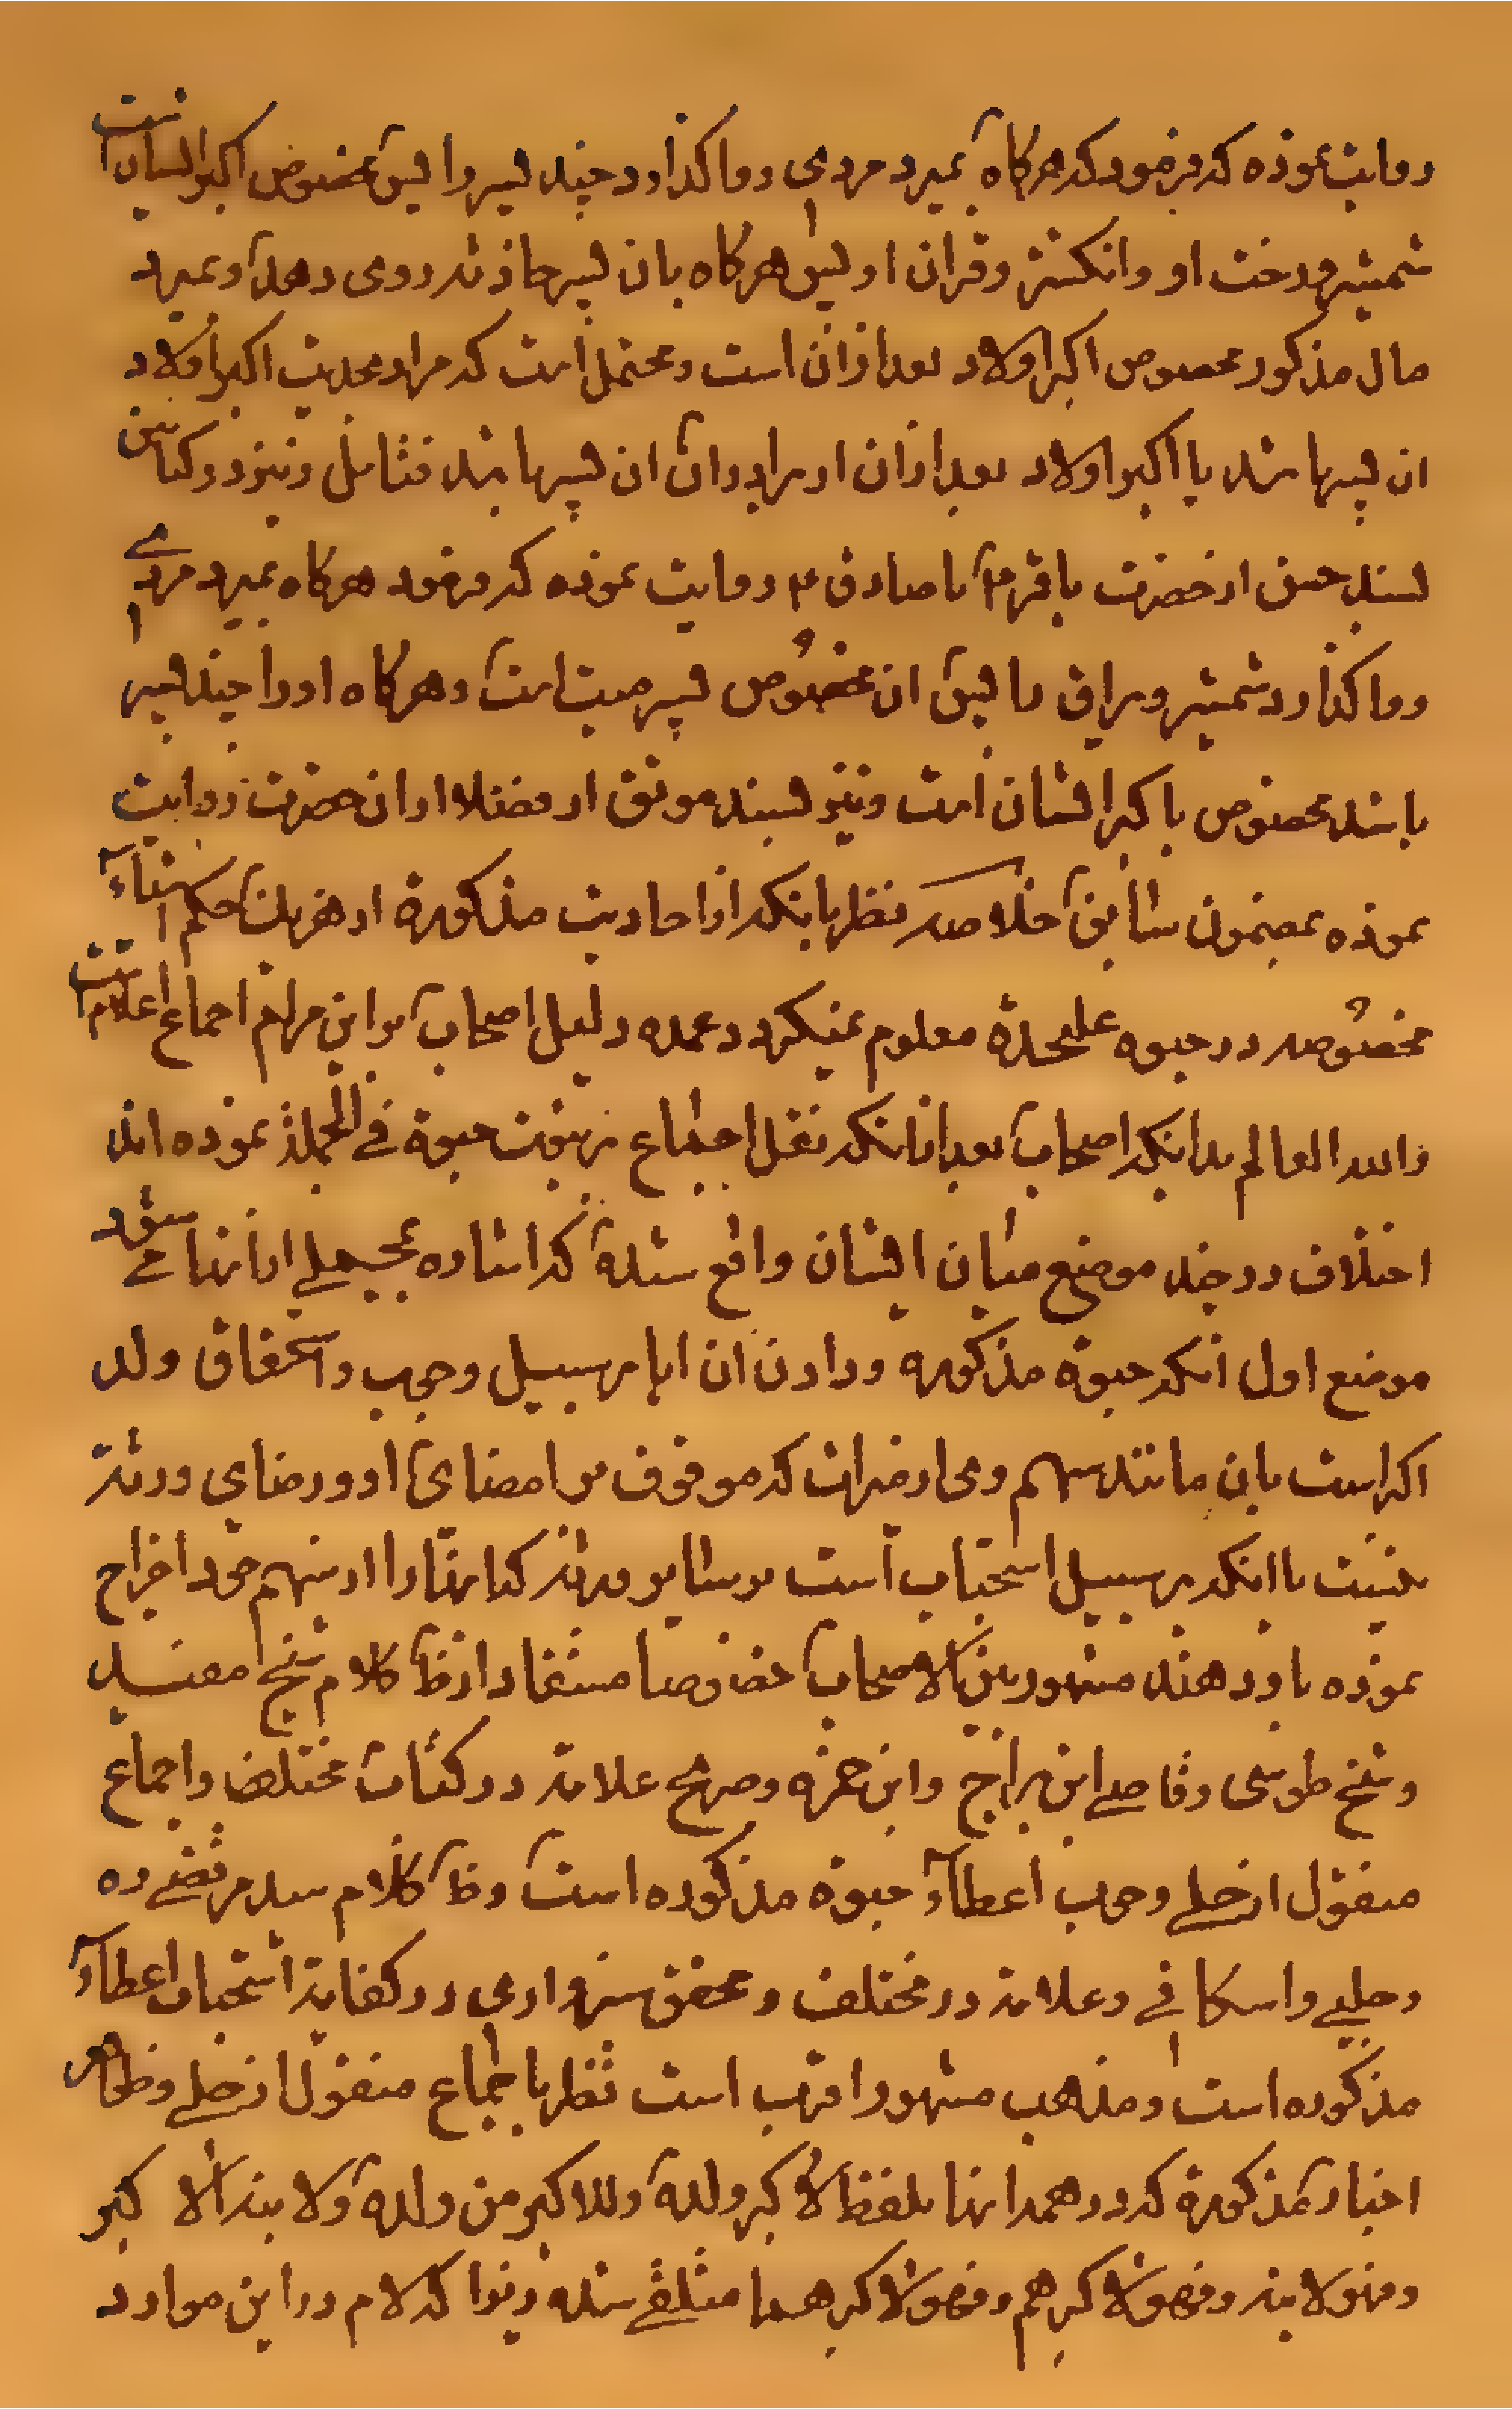 روایت نموده که فرمود که هرکاه بمیرد مردی و وا کذارد چند پسر را پس مخصوص اکبر ایشان است
شمشیر و رخت او و انکشتر و قران او پس هرکاه بان پسر حادثه روی دهد و بمیرد
مال مذکور مخصوص اکبر اولاد بعد از ان است و محتمل است که مراد بحدیث اکبر اولاد
ان پسر باشد یا اکبر اولاد بعد از ان از برادران ان پسر باشد فتامل و نیز در کتابین
بسند حسن از حضرت باقر ۴ یا صادق ۴ روایت نموده که فرمود هرکاه بمیرد مردے
و وا کذارد شمشیر و یراق را پس ان مخصوص پسر میت است و هرکاه او را چند پسر
باشد مخصوص باکبر ایشان است و نیز بسند موثق از فضلا از ان حضرت روایت
نموده بمضمون سابق خلاصه نظر باینکه از احادیث مذکورة از هر یک حکم اشیاء
مخصوصه در حبوه علیحدة معلوم میکردد عمده دلیل اصحاب بر این مرام اجماع اعلام است
والله العالم بدانکه اصحاب بعد از انکه نقل اجماع بر ثبوت حبوة فے الجملة نموده اند
اختلاف در چند موضع میان ایشان واقع شده که اشاره بمجملے از انها مے شود
موضع اول انکه حبوة مذکوره و دادن ان ایا بر سبیل وجوب و استحقاق ولد
اکبر است بان مانند سهم وی از میراث که موقوف بر امضای او و رضای ورثه
نیست یا انکه بر سبیل استحباب است بر سایر ورثه که انها را از سهم خود اخراج
نموده باو دهند مشهور بین الاصحاب خصوصا مستفاد از ظ کلام شیخ مفید
و شیخ طوسی و قاضے ابن براج و ابن حمزه و صریح علامه در کتاب مختلف و اجماع
منقول از حلے وجوب اعطاء حبوة مذکوره است و ظ کلام سید مرتضے ره
و حلبے و اسکافے و علامه در مختلف و محقق سبزواری در کفایة استحباب اعطاء
مذکوره است و مذهب مشهور اقرب است نظر باجماع منقول از حلے و ظاهر
اخبار مذکورة که در همه انها بلفظ لاکبر ولده و للاکبر من ولده و لابنه الاکبر
و فهو لابنه و فهو لاکبرهم و فهو لاکبرهما متلقے شده زیرا که لام در این موارد